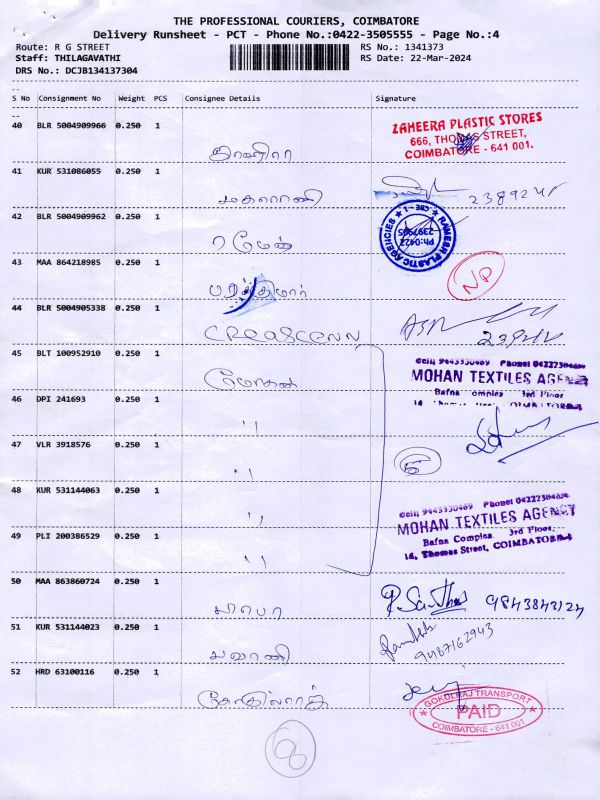 THE PROFESSIONAL COURIERS, COIMBATORE
Delivery Runsheet - PCT - Phone No.:0422-3505555 - Page No.:4
Route: R G STREET
RS No.: 1341373
Staff: THILAGAVATHI
RS Date: 22-Mar-2024
DRS No.: DCJB134137304
S No Consignment No Weight PCS Consignee Details Signature
40 BLR 5004909966 0.250 1
ZAHEERA PLASTIC STORES
666, THOMAS STREET,
COIMBATORE - 641 001.
41 KUR 531086055 0.250 1
மகாராணி
42 BLR 5004909962 0.250 1
ரமேஷ்
RAMESH PLASTIC AGENCIES ★ CBE - 1 ★
Ph:0422
2397985
43 MAA 864218985 0.250 1
NP
44 BLR 5004905338 0.250 1
45 BLT 100952910 1
0.250
மோகன்
Cell: 9443330469 Phone: 04222304684
MOHAN TEXTILES AGENCY
Bafna Complex 3rd Floor
14, Thomas Street, COIMBATORE
46 DPI 241693 0.250 1
"
47 VLR 3918576 0.250 1
"
5
48 KUR 531144063 0.250 1
"
Cell: 9443330469 Phone: 04222304684
MOHAN TEXTILES AGENCY
Bafna Complex, 3rd Floor,
14, Thomas Street, COIMBATORE-1
49 PLI 200386529 0.250 1
"
50 MAA 863860724 0.250 1
9843843124
51 KUR 531144023 0.250 1
பவானி
9487162943
52 HRD 63100116 0.250 1
கோகுல்ராஜ்
GOKULRAJ TRANSPORT
PAID
COIMBATORE - 641 001